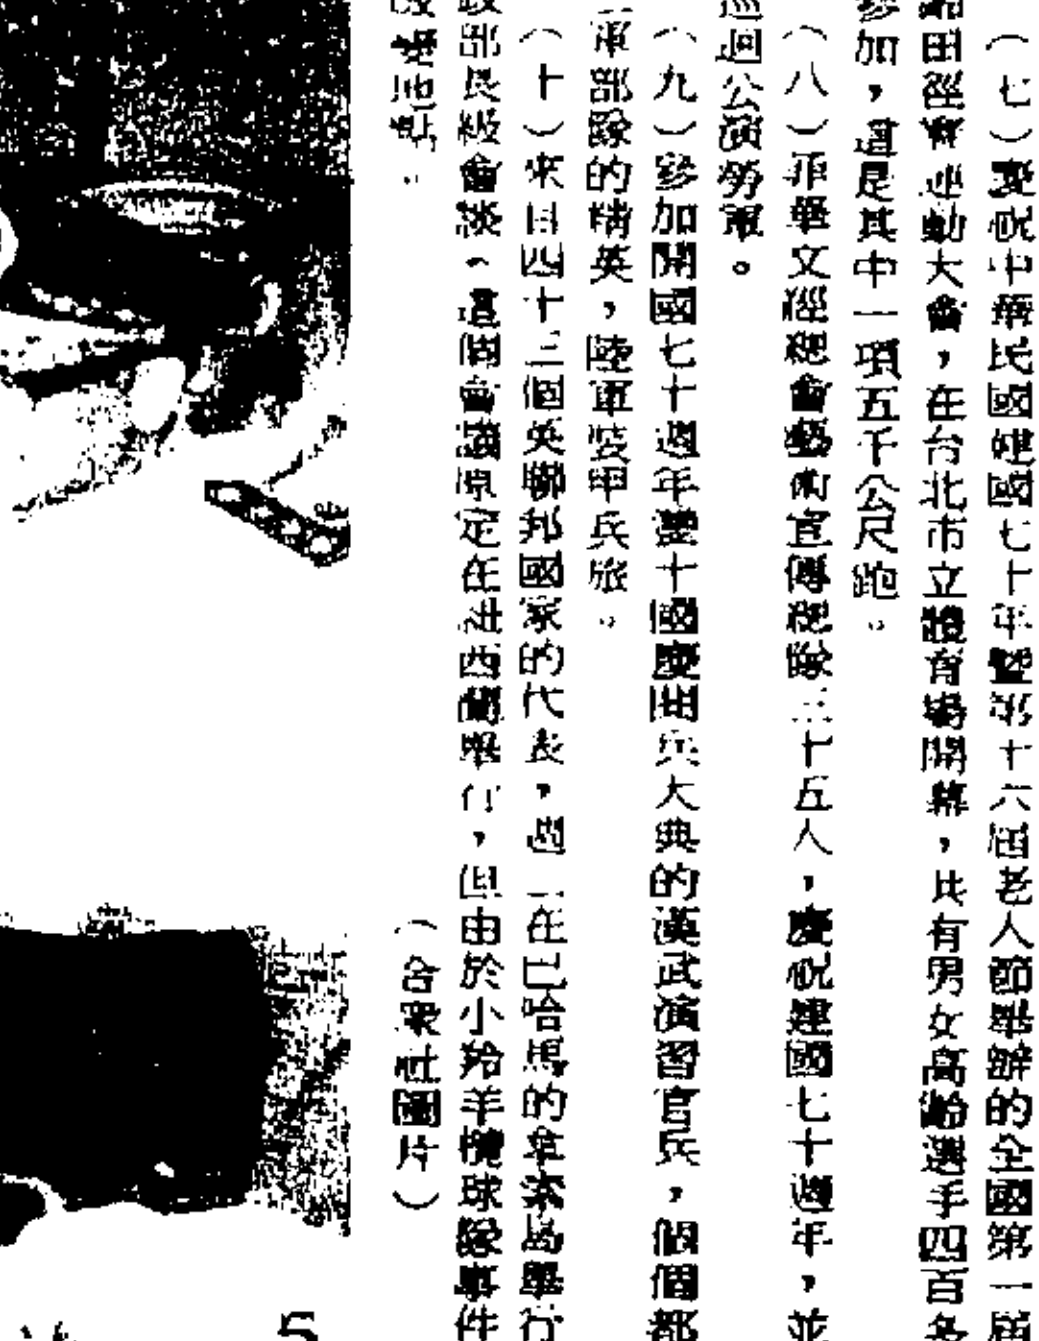 （七）慶祝中華民國建國七十年暨第十六屆老人節舉辦的全國第一屆
齡田徑賽運動大會，在台北市立體育場開幕，共有男女高齡選手四百多
參加，這是其中一項五千公尺跑。
（八）菲華文經總會藝術宣傳總隊三十五人，慶祝建國七十週年，並
巡迴公演勞軍。
（九）參加開國七十週年雙十國慶閱兵大典的漢武演習官兵，個個都
軍部隊的精英，陸軍裝甲兵旅。
（十）來自四十三個英聯邦國家的代表，週一在巴哈馬的拿索島舉行
政部長級會談。這個會議原定在紐西蘭舉行，但由於小羚羊欖球隊事件
改變地點。
（合衆社圖片）
5